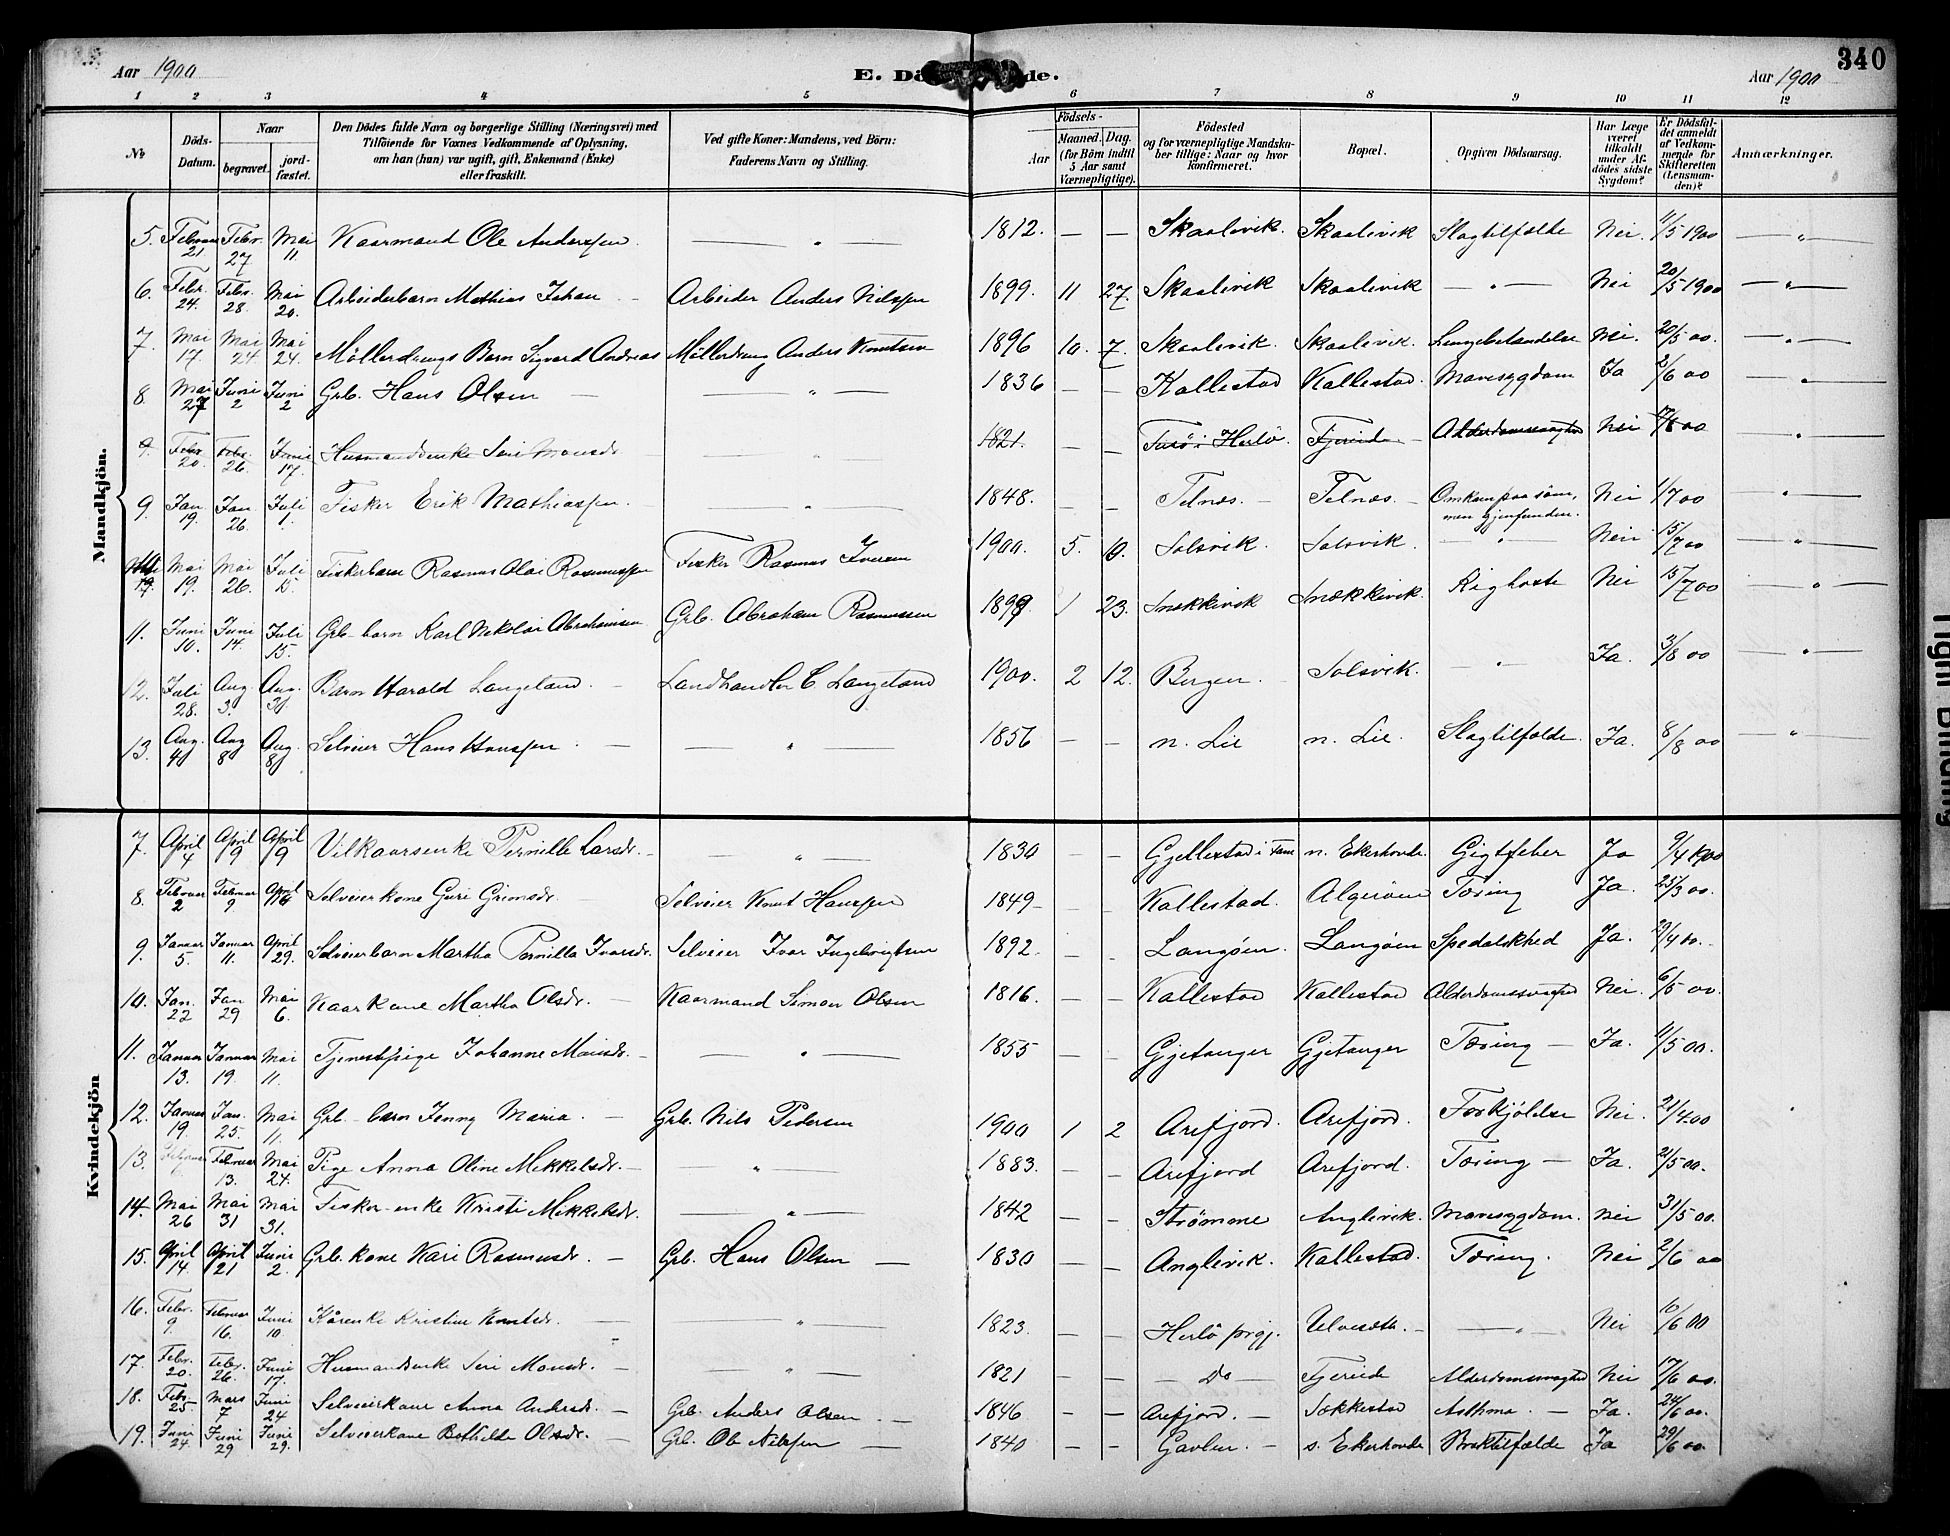 340
Aar 1900
E. Dö de.
Aar 1900
1 2 3 4 5 6 7 8 9 10 11 12
No
Döds-Datum.
Naar
begravet.
jord-fæstet.
Den Dödes fulde Navn og borgerlige Stilling (Næringsvei) med
Tilföiende for Voxnes Vedkommende af Oplysning,
om han (hun) var ugift, gift, Enkemand (Enke)
eller fraskilt.
Ved gifte Koner: Mandens, ved Börn:
Faderens Navn og Stilling.
Födsels-
Aar
Maaned. Dag.
(for Börn indtil
5 Aar samt
Værnepligtige).
Födested
og for værnepligtige Mandska-
ber tillige: Naar og hvor
konfirmeret.
Bopæl.
Opgiven Dödsaarsag.
Har Læge
været
tilkaldt
under Af-
dödes sidste
Sygdom?
Er Dödsfal-
det anmeldt
af Vedkom-
mende for
Skifteretten
(Lensman-
den)?
Anmærkninger.
Mandkjön.
5. Februar 21 Febr. 27 Mai 11. Kaarmand Ole Anderssen — " 1812. — — Skaalevik. Skaalevik Slagtilfælde Nei. 11/5 1900 — " —
6. Febr. 24. Febr. 28. Mai 20. Arbeiderbarn Mathias Johan Arbeider Anders Nilssen 1899. 11 27. Skaalevik Skaalevik — " — Nei 20/5 1900 — " —
7. Mai 17. Mai 24. Mai 24. Möllerdrengs Barn Sigvard Andreas Möllerdreng Anders Knutsen 1896 10. 7. Skaalevik. Skaalevik. Lungebetændelse Nei. 20/5 00. — " —
8. Mai 27 Juni 2 Juni 2 Grb. Hans Olsen — — " — 1836 — — Kallestad Kallestad. Mavesygdom Ja 2/6 00 "
9. Febr. 20. Febr. 26. Juni 17. Husmandsenke Siri Monsdr. " 1821. — — i Herlö. Fjereide Alderdomssvaghed Nei 00 "
9. Jan. 19. Jan. 26. Juli 1. Fisker Erik Mathiassen. — " — 1848. — — Telnæs. — Telnæs. — Omkom paa söen, men gjenfunden. Nei 1/7 00 "
Mai 19. Mai 26. Juli 15. Fiskerbarn Rasmus Olai Rasmussen Fisker Rasmus Iversen 1900. 5. 10. Solsvik. Solsvik. " Nei 15/7 00 "
11. Juni 10. Juni 14. Juli 15. Grb. barn Karl Nikolai Abrahamsen Grb. Abraham Rasmussen 1899. 1 23. Snekkevik Snækkevik. Kighoste Nei 15/7 00 — " —
12. Juli 28. Aug. 3. Aug. 3 Barn Harald Langeland. — Landhandler C Langeland 1900. 2 12. Bergen. Solsvik. — " — Ja. 3/8 00 — " —
13. Aug. 4 Aug 8 Aug. 8 Selveier Hans Hanssen. — — " — 1856 — — n. Lie n. Lie. Slagtilfælde. Ja. 8/8 00 — " —
Kvindekjön
7. April 4 April 9 April 9 Vilkaarsenke Pernille Larsdr. — — " — 1830 — — Gjellestad i Fane n. Ekerhovde. Gigtfeber Ja 9/4 1900
8. Februar 2 Februar 9 April 16 Selveierkone Guri Grimsdr. Selveier Knut Hanssen 1849 — Kallestad. Algeröen Tæring Ja. 25/3 00.
9. Januar 5. Januar 11. April 29. Selveierbarn Martha Pernilla Ivarsdr. Selveier Ivar Ingebrigtsen 1892. — — Langöen. Langöen Spedalskhed Ja. 29/4 00.
10. Jan. 22 Jan 29 Mai 6. Kaarkone Martha Olsdr. — Kaarmand Simon Olsen 1816. — — Kallestad Kallestad Alderdomssvaghed Nei. 6/5 00.
11. Januar 13. Januar 19. Mai 11. Tjenestpige Johanne Monsdr. — — " — 1855 — — Gjetanger Gjetanger Tæring — Ja. 11/5 00.
12. Januar 19. Jan. 25. Mai 11. Grb. barn Jenny Maria. — Grb. Nils Pedersen 1900 1 2 Arefjord. Arefjord. Forkjölelse Nei. 21/4 00
13. Februar 13. Mai 24. Pige Anna Oline Mikkelsdr. — " 1883. — — Arefjord Arefjord. Tæring — Ja. 2/5 00.
14. Mai 26 Mai 31 Mai 31. Fisker-enke Kristi Mikkelsdr. — " — 1842 — — Strömme Anglevik. Mavesygdom. Nei 31/5 00.
15. April 14. April 21 Juni 2. Grb. kone Kari Rasmusdr. — Grb. Hans Olsen — 1830 — — Anglevik. Kallestad. Tæring. Nei 2/6 00
16. Febr. 9. Februar 16. Juni 10. Kårenke Kristine Knutsdr. — " — 1823. — — Herlö prgj. Ulvesæth. — — " — Nei 10/6 00
17. Febr. 20. Febr. 26. Juni 17. Husmandsenke Siri Monsdr. — — " — 1821 — — — Do — Fjereide Alderdomssvaghed Nei 17/6 00.
18. Febr. 25 Mars 7 Juni 24 Selveierkone Anna Andersdr. — Grb. Anders Olsen — 1846 — — Arefjord. — Sökkestad Asthma. — Ja. 24/6 00.
19. Juni 24 Juni 29 Juni 29. Selveierkone Bothilde Olsdr. — Grb. Ole Nilssen — 1840 — — Gavlen. — s. Ekerhovde Ja 29/6 00.